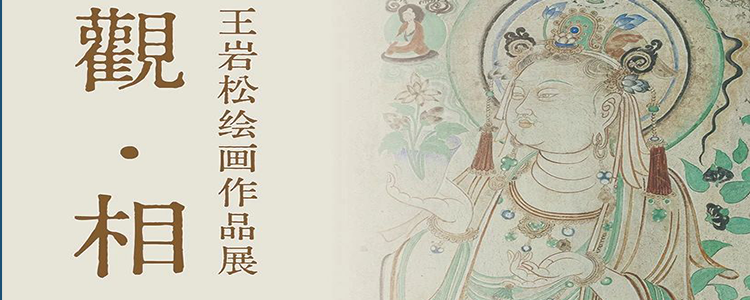 觀·相
王岩松绘画作品展